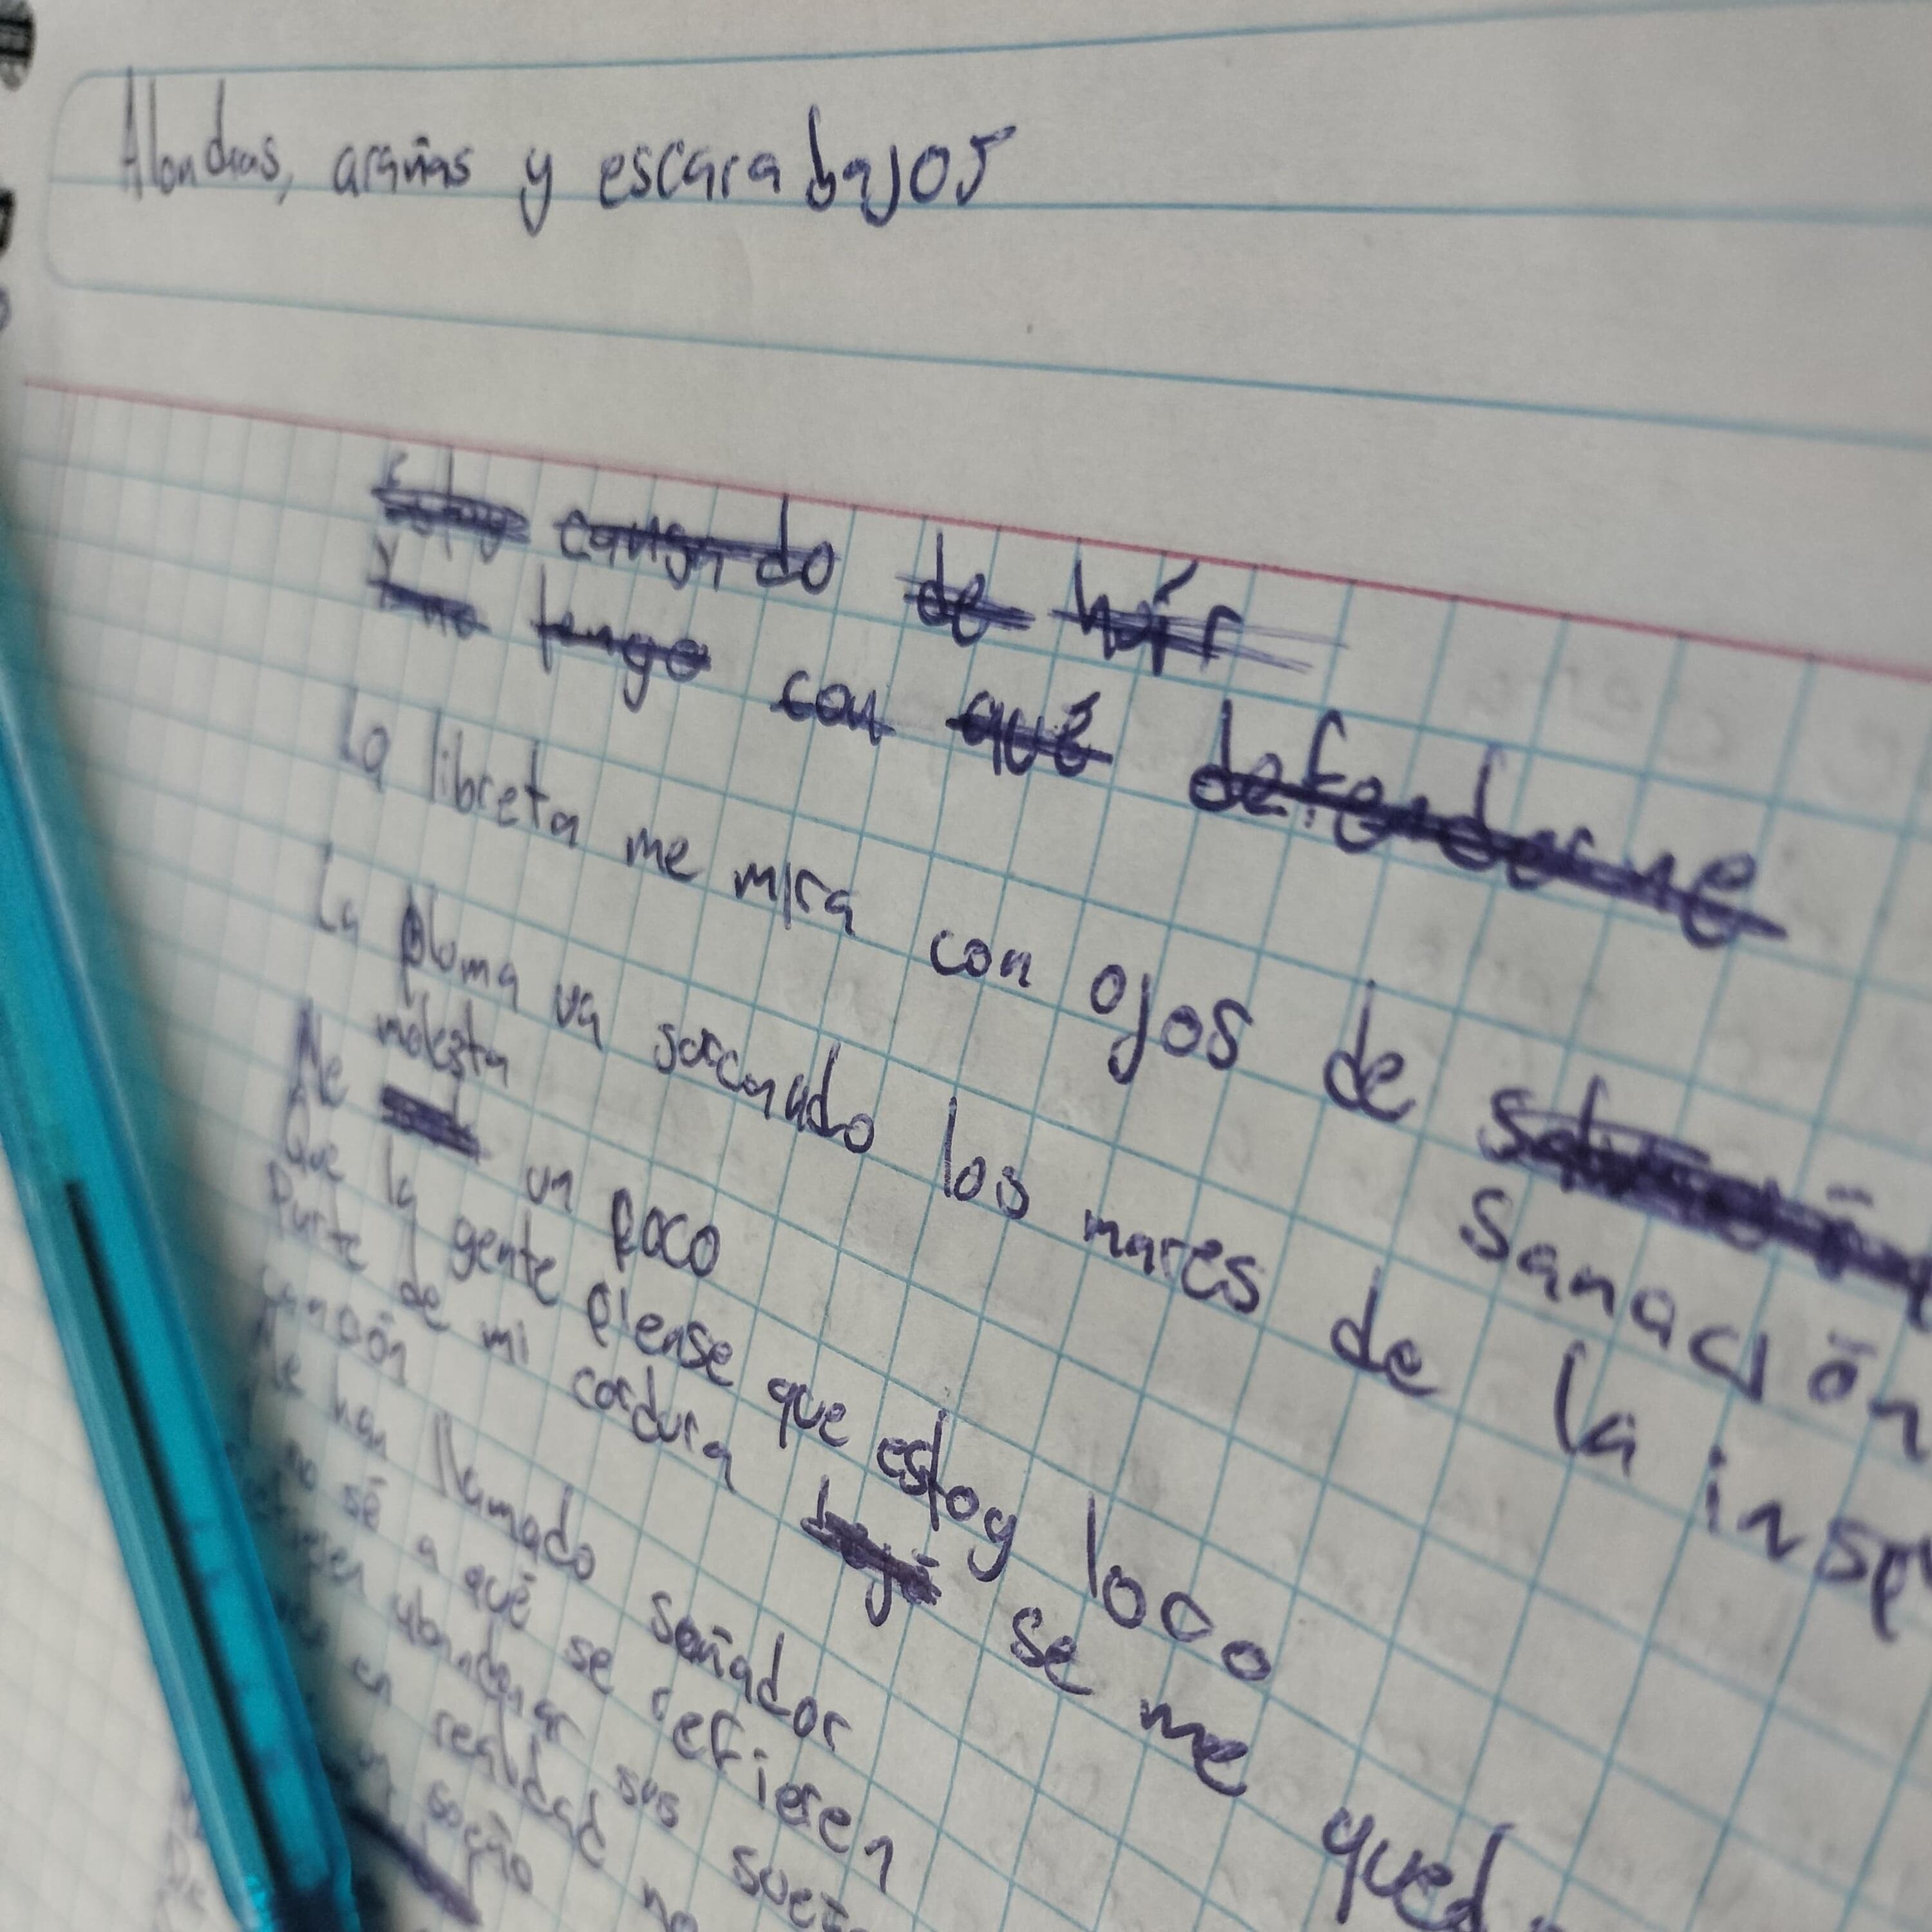 Alondras, arañas y escarabajos
Estoy cansado de huír
Y no tengo con qué defenderme
La libreta me mira con ojos de
sanación
La pluma va surcando los mares de la
molesta
Me un poco
Que la gente piense que estoy loco
Parte de mi cordura se me
Me han llamado soñador
no sé a qué se refieren
abandonar sus
en realidad no
un sueño